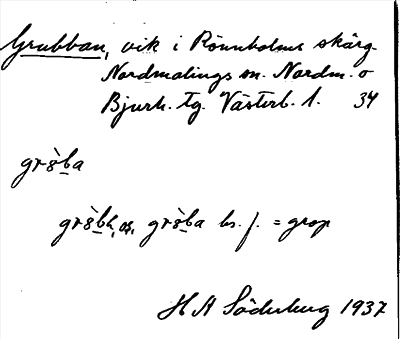 Grubban, vik i Rönnholms skärg.
Nordmalings sn. Nordm. o
Bjurh. tg. Västerb. l. 34
gr8̀ba
gr8̀b, gr8̀ba bs. f. = grop
H A Söderberg 1937